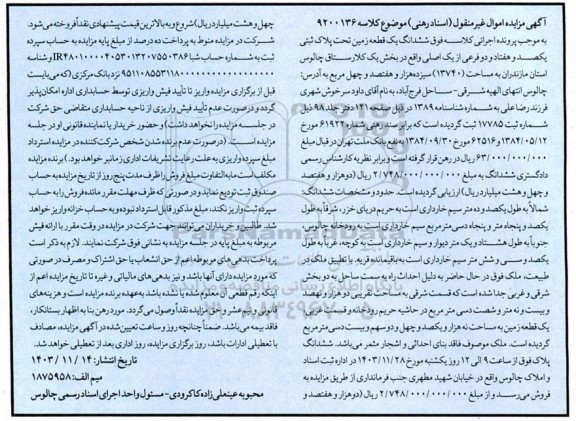 آگهی مزایده اموال غیرمنقول (اسناد رهنی) موضوع کلاسه ۹۲۰۰۱۳۶
به موجب پرونده اجرائی کلاسه فوق ششدانگ یک قطعه زمین تحت پلاک ثبتی
یکصد و هفتاد و دو فرعی از یک اصلی واقع در بخش یک کلارستاق چالوس
استان مازندران به مساحت (۱۳۷۴۰) سیزده هزار و هفتصد و چهل مربع به آدرس:
چالوس انتهای الهیه شرقی - ساحل فرح آباد، به نام آقای داود سرخوش شهری
فرزند رضا علی به شماره شناسنامه ۱۳۸۹ در قبل صفحه ۱۲۱ دفتر جلد ۹۸ ذیل
شماره ثبت ۱۷۷۸۵ ثبت گردیده است که برابر سند رهنی شماره ۶۱۹۲۲ مورخ
۱۳۸۴/۰۵/۱۲ و ۶۲۵۱۶ مورخ ۱۳۸۴/۰۹/۳۰ به نفع بانک ملت تهران در قبال مبلغ
۶۳/۰۰۰/۰۰۰/۰۰۰ ریال در رهن قرار گرفته است و برابر نظریه کارشناس رسمی
دادگستری ششدانگ به مبلغ ۲/۷۴۸/۰۰۰/۰۰۰/۰۰۰ ریال (دو هزار و هفتصد
و چهل و هشت میلیارد ریال) ارزیابی گردیده است. حدود و مشخصات ششدانگ:
شمالاً به طول یکصد و ده متر سیم خارداری است به حریم دریای خزر، شرقاً به طول
یکصد و پنجاه متر و پنجاه دسی متر مربع سیم خارداری است به رودخانه چالوس،
جنوباً به طول هشتاد و یک متر دیوار و سیم خارداری است به کوچه، غرباً به طول
یکصد و سی و شش متر سیم خارداری است به باقیمانده قریه. با تطبیق ملک در
طبیعت، ملک فوق در حال حاضر به دلیل احداث راه به سمت ساحل به دو بخش
شرقی و غربی جدا شده است که قسمت شرقی به مساحت تقریبی دو هزار و نهصد
و بیست و نه متر و شصت دسی متر مربع در حاشیه حریم رودخانه و قسمت غربی،
یک قطعه زمین به مساحت نه هزار و یکصد و چهل و دو سهم و بیست دسی متر مربع
گردیده است. ملک موصوف فاقد بنای احداثی و اشجار مثمر می باشد. ششدانگ
پلاک فوق از ساعت ۹ الی ۱۲ روز یکشنبه مورخ ۱۴۰۳/۱۱/۲۸ در اداره ثبت اسناد
و املاک چالوس واقع در خیابان شهید مطهری جنب فرمانداری از طریق مزایده به
فروش می رسد و از مبلغ ۲/۷۴۸/۰۰۰/۰۰۰/۰۰۰ ریال (دو هزار و هفتصد و
چهل و هشت میلیارد ریال) شروع و به بالاترین قیمت پیشنهادی نقداً فروخته می شود.
شرکت در مزایده منوط به پرداخت ده درصد از مبلغ پایه مزایده به حساب سپرده
ثبت به شماره حساب شبا و شناسه
نزد بانک مرکزی (که می بایست
قبل از برگزاری مزایده واریز تا تأیید فیش واریزی توسط حسابداری اداره امکان پذیر
گردد و در صورت عدم تأیید فیش واریزی از ناحیه حسابداری متقاضی حق شرکت
در جلسه مزایده را نخواهد داشت) و حضور خریدار یا نماینده قانونی او در جلسه
مزایده است. (در صورت عدم برنده شدن شخص شرکت کننده در مزایده استرداد
مبلغ سپرده واریزی به علت رعایت تشریفات اداری زمانبر خواهد بود.) برنده مزایده
مکلف است مابه التفاوت مبلغ فروش را ظرف مدت پنج روز از تاریخ مزایده به حساب
صندوق ثبت تودیع نماید و در صورتی که ظرف مهلت مقرر مانده فروش را به حساب
سپرده ثبت واریز نکند، مبلغ مذکور قابل استرداد نبوده و به حساب خزانه واریز خواهد
شد. طالبین و خریداران می توانند جهت شرکت در مزایده در وقت مقرر با ارائه فیش
مربوطه به مبلغ پایه در جلسه مزایده به نشانی فوق شرکت نمایند. لازم به ذکر است
پرداخت بدهی های مربوطه اعم از حق انشعاب یا حق اشتراک و مصرف در صورتی
که مورد مزایده دارای آنها باشد و نیز بدهی های مالیاتی و غیره تا تاریخ مزایده اعم از
اینکه رقم قطعی آن معلوم شده یا نشده باشد به عهده برنده مزایده است و هزینه های
قانونی و نیم عشر و حق مزایده نقداً وصول می گردد. مورد رهن بنا به اظهار بستانکار،
فاقد بیمه می باشد. ضمناً چنانچه روز و ساعت تعیین شده در آگهی مزایده، مصادف
با تعطیلی ادارات باشد، روز برگزاری مزایده، روز اداری بعد از تعطیلی خواهد شد.
تاریخ انتشار: ۱۴ / ۱۱ / ۱۴۰۳
میم الف: ۱۸۷۵۹۵۸
محبوبه عینعلی زاده کاکرودی - مسئول واحد اجرای اسناد رسمی چالوس